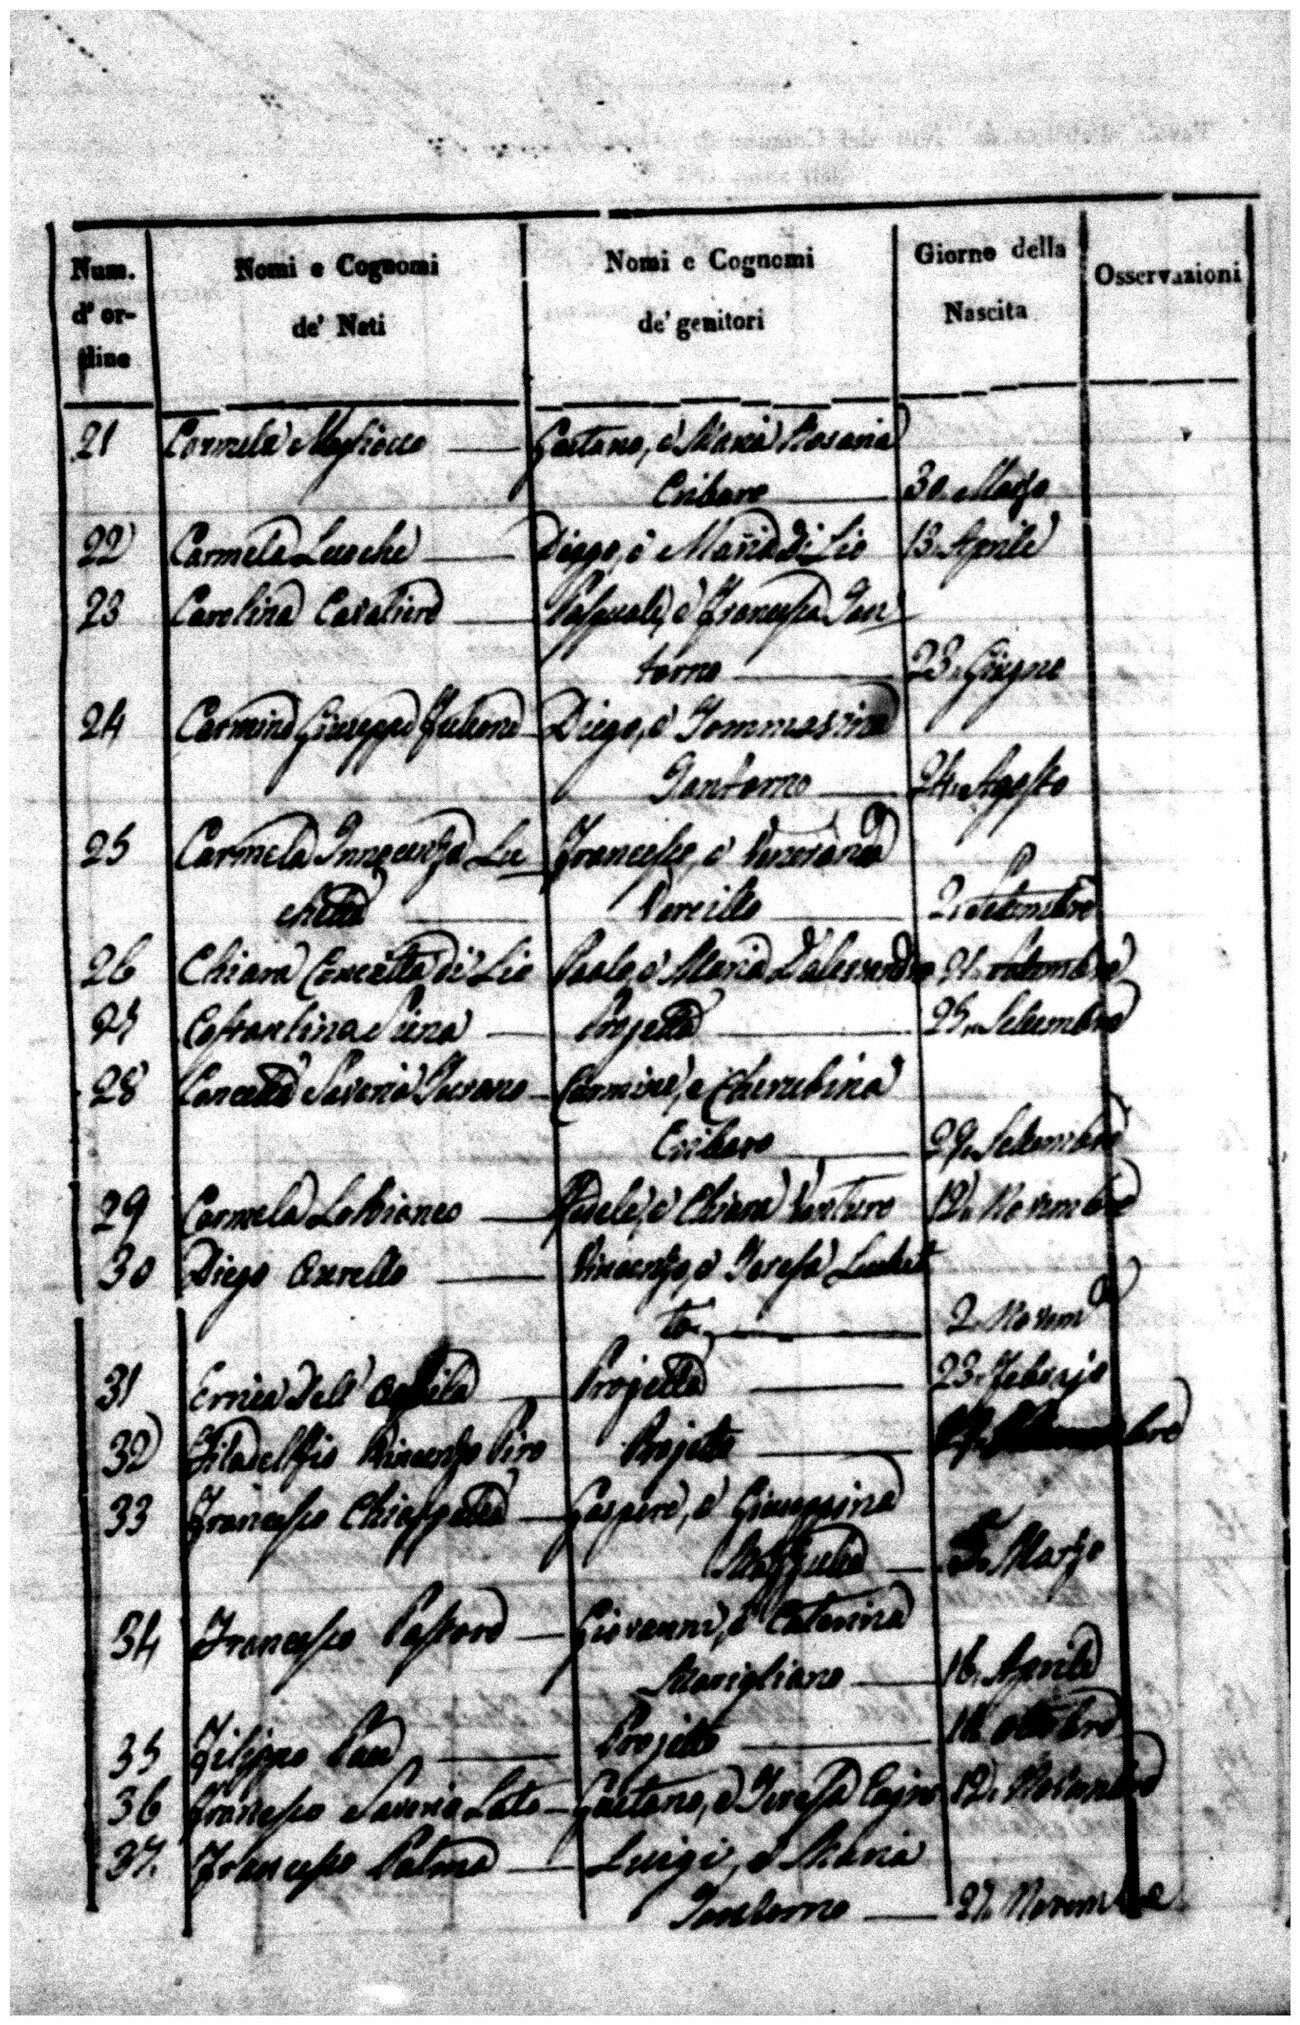 Num. d'ordine
Nomi e Cognomi de' Nati
Nomi e Cognomi de' genitori
Giorno della Nascita
Osservazioni
21 Carmela Gaetano, e Maria Rosaria
Cribaro 30. Marzo
22 Carmela Diego, e Maria di Lio 13. Aprile
23 Carolina Cavaliere Pasquale, e Francesca Tan
torno 23. Giugno
24 Carmine Giuseppe Diego, e Tommasina
Tantorno 24. Agosto
25 Carmela Innocenza Lu Francesco, e Veneranda
chetta Vercillo 2. Settembre
26 Chiara Concetta di Lio Paolo, e Maria D'alessandro 21. Settembre
27 Costantina Siena Projetta 25. Settembre
28 Concetta Saveria Carmine, e Cherubina
Cribaro 29. Settembre
29 Carmela Lobianco Fedele, e Chiara Venturo 12. Novembre
30 Diego Vincenzo, e Teresa Luchet
ta 2. Novem
31 Errica Dell' Projetta 23. Febrajo
32 Filadelfio Vincenzo Piro Projetto
33 Francesco Chiappetta Gaspere, e Giuseppina
Mazzulla 5. Marzo
34 Francesco Pastore Giovanni, e Caterina
Marigliano 16. Aprile
35 Filippo Projetto Ottobre
36 Francesco Saverio Gaetano, e Teresa 12. Novembre
37. Francesco Palma Luigi, e Maria
Tantorno 27. Novembre